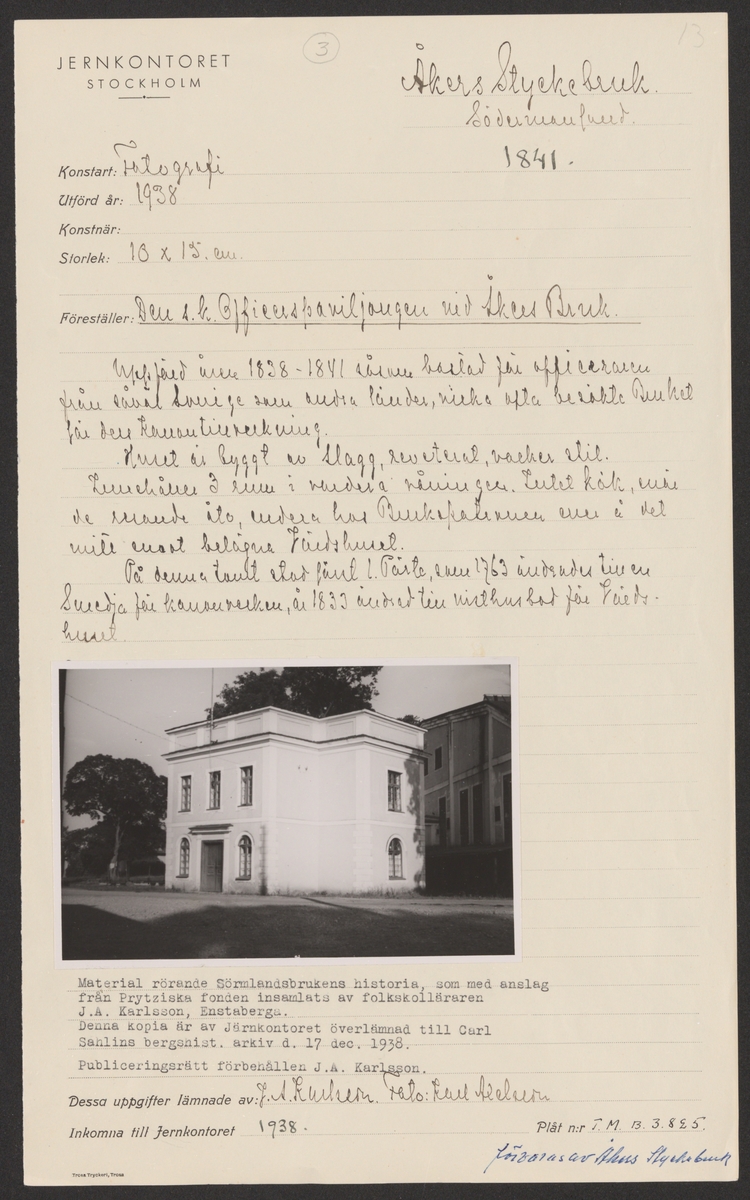 3
13
JERNKONTORET
STOCKHOLM
Åkers Styckebruk.
Södermanland.
1841.
Konstart: Fotografi
Utförd år: 1938
Konstnär:
Storlek: 10 x 15. cm.
Föreställer: Den s.k. Officerspaviljongen vid Åkers Bruk.
Uppförd åren 1838-1841 såsom bostad för officerare
från såväl Sverige som andra länder, vilka ofta besökte Bruket
för dess kanontillverkning.
Huset är byggt av slagg, reveterat, vacker stil.
Innehåller 3 rum i vardera våningen. Intet kök, enär
de boende åto, endera hos Brukspatronen eller å det
mitt emot belägna Värdshuset.
På denna tomt stod förut 1. Pörte, som 1763 ändrades till en
Smedja för kanonverken, år 1833 ändrad till visthusbod för Värds-
huset
Material rörande Sörmlandsbrukens historia, som med anslag
från Prytziska fonden insamlats av folkskolläraren
J.A. Karlsson, Enstaberga.
Denna kopia är av Järnkontoret överlämnad till Carl
Sahlins bergshist. arkiv d. 17 dec. 1938.
Publiceringsrätt förbehållen J.A. Karlsson.
Dessa uppgifter lämnade av: J. A. Karlsson. Foto: Karl Axelsson
Inkomna till Jernkontoret 1938.
Plåt n:r T. M. B. 3. 895.
förvaras av Åkers Styckebruk
Trosa Tryckeri, Trosa